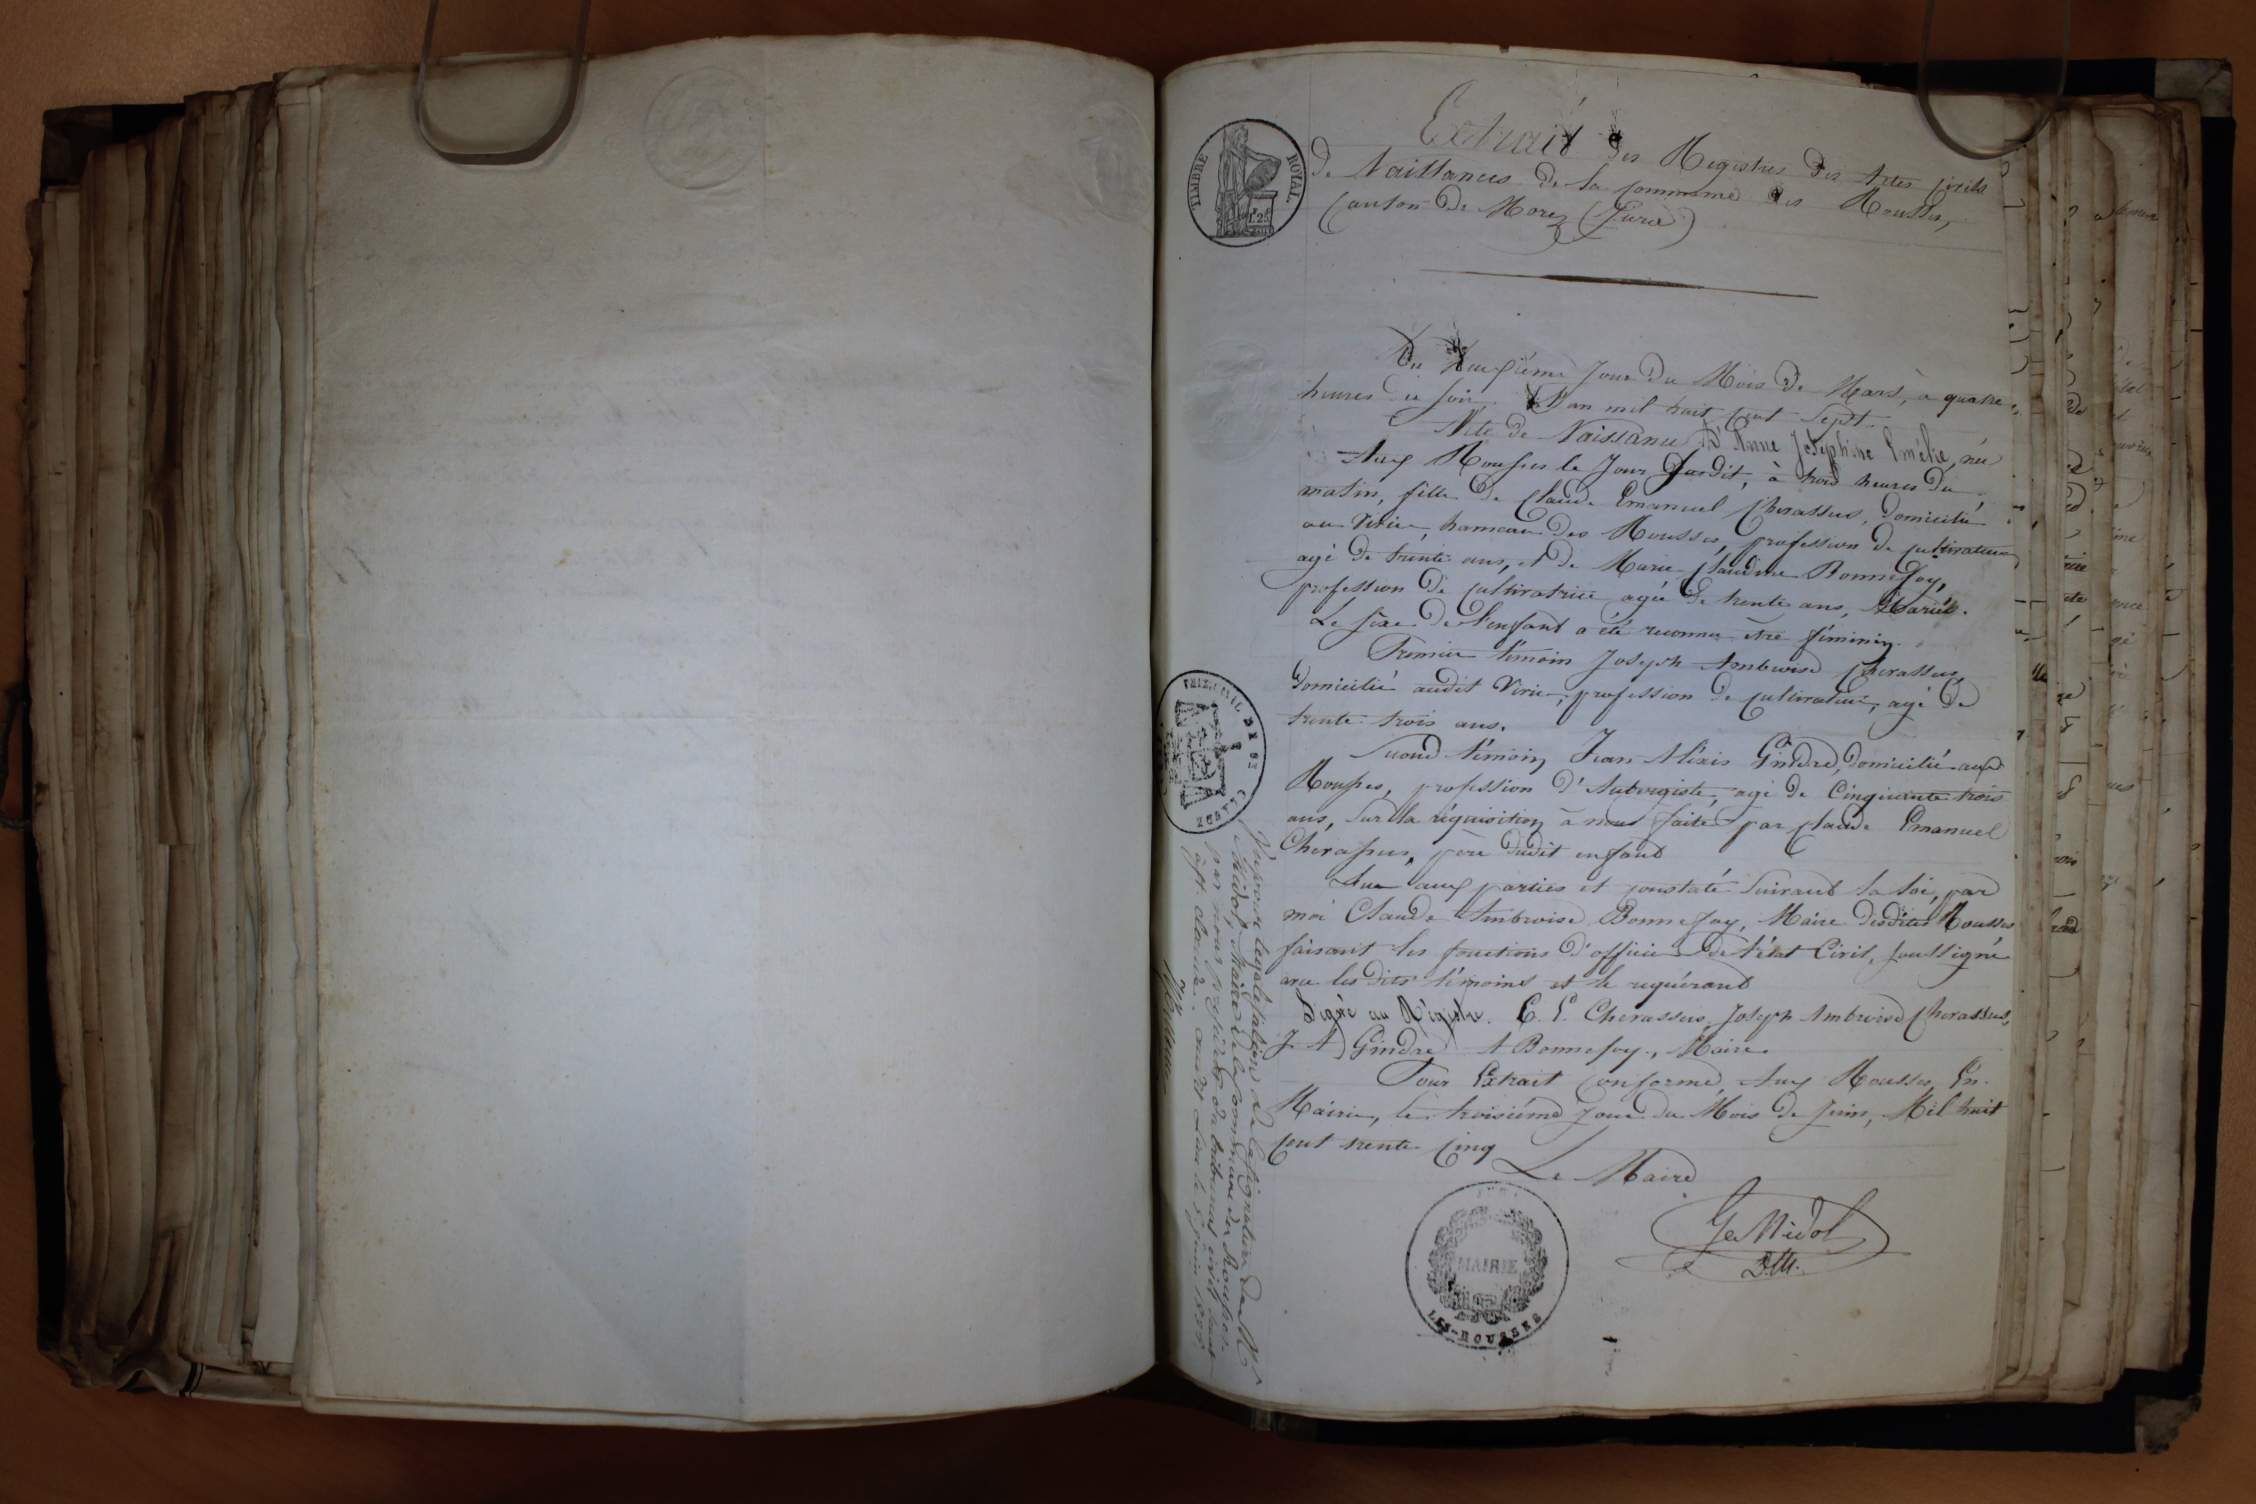 TIMBRE ROYAL
Extrait des Registres des Actes civils
de Naissances de la commune des Rousses,
Canton de Morez (Jura)
Du jour du Mois de Mars, à quatre
heures du soir L'an mil huit cent sept.
Acte de Naissance D'Anne Josephine Emélie, née
Aux Rousses le Jour susdit, à trois heures du
matin, fille de Claude Emanuel Cherassus, domicilié
au Virie, hameau des Rousses, profession de cultivateur
agé de trente ans, et de Marie Claudine Bonnefoy,
profession de cultivatrice agée de trente ans, Mariés.
Le sèxe de l'enfant a été reconnu être féminin.
Premier témoin Joseph Ambroise Cherassus,
Domicilié audit Virie, profession de cultivateur, agé de
trente trois ans.
Second témoin Jean Aléxis Gindre, domicilié aux
Rousses, profession d'Aubergiste, agé de Cinquante trois
ans, Sur la réquisition à nous faite par Claude Emanuel
Cherassus, père dudit enfant
Lue aux parties et constaté suivant la loi, par
moi Claude Ambroise Bonnefoy, Maire desdites Rousses
faisant les fonctions d'officier de l'état Civil, soussigné
avec les dits témoins et le requérant
Signé au Régistre. C. E. Cherassus, Joseph Ambroise Cherassus,
J. A Gindre A Bonnefoy, Maire.
Pour Extrait Conforme, Aux Rousses, En
Mairie, le troisième Jour du Mois de Juin, Mil huit
Cent trente Cinq
Le Maire
MAIRIE
LES-ROUSSES
TRIBUNAL DE ST CLAUDE
Vu pour légalisation de la signature de Mr
Nidol, Maire de la commune des Rousses.
par nous président du tribunal civil séant
à St. Claude. audit lieu le 5 juin 1835.